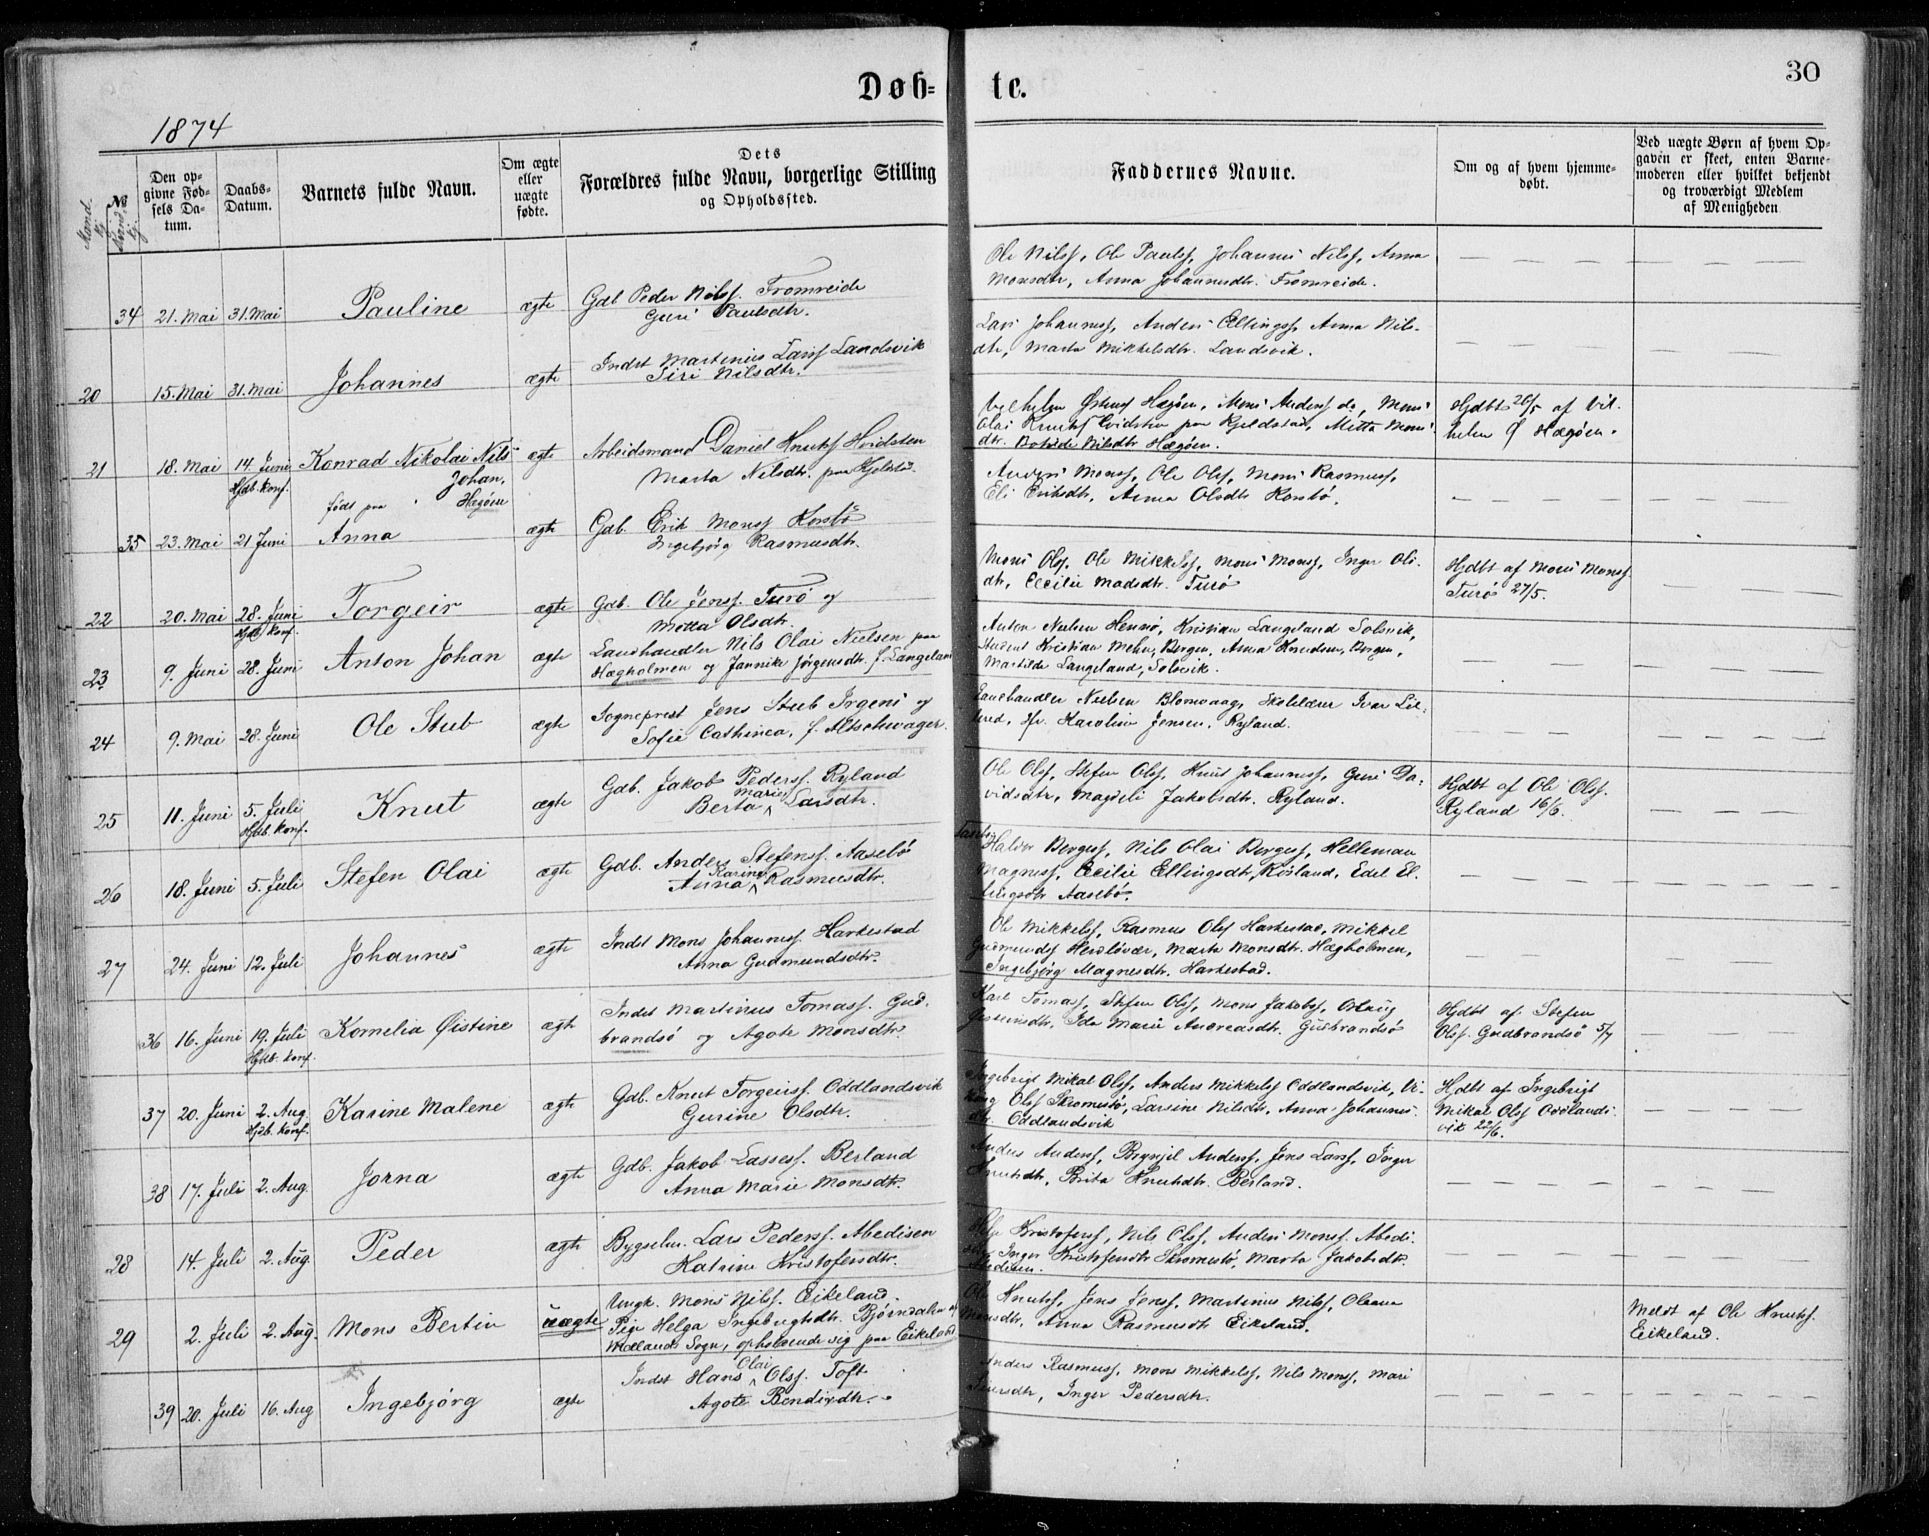 Døb=te.
30
1874
Mand.kj.
№ Kvind.kj.
Den opgivne Fødsels Datum.
Daabs-Datum.
Barnets fulde Navn.
Om ægte eller uægte fødte.
Dets Forældres fulde Navn, borgerlige Stilling og Opholdssted.
Faddernes Navne.
Om og af hvem hjemmedøbt.
Ved uægte Børn af hvem Opgaven er skeet, enten Barnemoderen eller hvilket bekjendt og troværdigt Medlem af Menigheden
34 21. Mai 31. Mai Pauline ægte Gdb. Peder Nilss. Fromreide
Guri Paulsdtr.
Ole Nilss, Ole Paulss, Johannes Nilss, Anna
Monsdtr, Anna Johannesdtr. Fromreide.
20 15. Mai 31. Mai Johannes ægte Indst Martinus Larss Landsvik
Siri Nilsdtr.
Lars Johanness, Anders Ellingss, Anna Nils-
dtr, Marta Mikkelsdtr. Landsvik.
21 18. Mai 14. Juni Konrad Nikolai Nils ægte Arbeidsmand Daniel Knutss Hvidsten
Hjdb. konf. Johan, Marta Nilsdtr. paa Kjelstad
født paa Hægøen
Vilhelm Hægøen, Mons Anderss do, Mons
Olai Knutss Hvidsten paa Kjeldstad, Mitta Mons-
dtr. Botilde Nilsdtr Hægøen.
Hjdbt 26/5 af Vil-
helm Ø Hægøen.
35 23. Mai 21 Juni Anna ægte Gdb. Erik Monss Korsbø
Ingebjørg Rasmusdtr.
Anders Monss, Ole Olss, Mons Rasmuss,
Eli Eriksdtr, Anna Olsdtr Korsbø.
22 20. Mai 28. Juni Torgeir ægte Gdb. Ole Jenss. Turø og
Hjdb. konf. Motta Olsdtr.
Mons Olss. Ole Mikkelss, Mons Monss, Inger Ols-
dtr, Cecilie Madsdtr. Turø
Hjdbt af Mons Monss
Turø 27/5.
23 9. Juni 28. Juni Anton Johan ægte Landhandler Nils Olai Nielsen paa
Hægholmen og Jannike Jørgensdtr. f. Langeland
Anton Nielsen Hennø, Kristian Langeland Solsvik,
Student Kristian Mehn, Bergen, Anna Knudsen, Bergen,
Martilde Langeland, Solsvik.
24 9. Mai 28. Juni Ole Stub ægte Sogneprest Jens Stub Irgens og
Sofie Cathinca, f. Altschwager.
Landhandler Nielsen Blomvaag, Skolelærer Ivar Lil-
lered, Fr. Karoline Jensen, Ryland.
25 11. Juni 5. Juli Knut ægte Gdb. Jakob Pederss. Ryland
Hjdb. konf. Berta Marie Larsdtr.
Ole Olss, Stefen Olss, Knut Johanness, Guri Da-
vidsdtr, Magdeli Jakobsdtr. Ryland.
Hjdbt af Ole Olss.
Ryland 16/6.
26 18. Juni 5. Juli Stefen Olai ægte Gdb. Anders Stefenss. Aasebø
Anna Karine Rasmusdtr.
Halvor Bergess, Nils Olai Bergess, Helleman
Magness, Cecilie Ellingsdtr, Røsland, Edel El-
lingsdtr Aasebø.
27 24. Juni 12. Juli Johannes ægte Indst Mons Johanness. Harkestad
Anna Gudmundsdtr.
Ole Mikkelss, Rasmus Olss Harkestad, Mikkel
Gudmundss Herdlevær, Marta Monsdtr. Hægholmen,
Ingebjørg Magnesdtr. Harkestad.
36 16. Juni 19. Juli Kornelia Øistine ægte Indst Martinus Tomass. Gud-
Hjdb. konf. brandsø og Agote Monsdtr.
Karl Tomass, Stefen Olss, Mons Jakobss,
Ida Marie Andreasdtr. Gudbrandsø
Hjdbt af Stefen
Olss. Gudbrandsø 5/7
37 20. Juni 2. Aug. Karine Malene ægte Gdb. Knut Torgeirss. Oddlandsvik
Hjdb. konf. Gurine Olsdtr.
Ingebrigt Mikal Olss, Anders Mikkelss Oddlandsvik, Vi-
king Olss Skromestø, Larsine Nilsdtr, Anna Johannes-
dtr. Oddlandsvik
Hjdbt af Ingebrigt
Mikal Olss Oddlands-
vik 22/6.
38 17. Juli 2. Aug. Jorna ægte Gdb. Jakob Lassess. Berland
Anna Marie Monsdtr.
Anders Anderss, Brynjil Anderss, Jens Larss, Inger
Knutsdtr, Brita Knutsdtr. Berland.
28 14. Juli 2. Aug. Peder ægte Bygselm. Lars Pederss. Abedisen
Katrine Kristofersdtr.
Kristoferss, Nils Olss, Anders Monss. Abedi-
sen, Inger Kristofersdtr Skromestø, Marta Jakobsdtr.
Abedisen.
29 2. Juli 2. Aug. Mons Bertin uægte Ungk. Mons Nilss. Eikeland.
Pige Helga Ingebrigtsdtr. Bjørndalen af
Mælands Sogn, opholdende sig paa Eikeland
Ole Knutss, Jens Jenss, Martinus Nilss, Oleana
Monsdtr, Anna Rasmusdtr Eikeland.
Meldt af Ole Knutss.
Eikeland.
39 20. Juli 16. Aug Ingebjørg ægte Indst Hans Olai Olss. Toft
Agote Bendixdtr.
Anders Rasmuss, Mons Mikkelss, Nils Monss, Mari
Inger Pedersdtr.